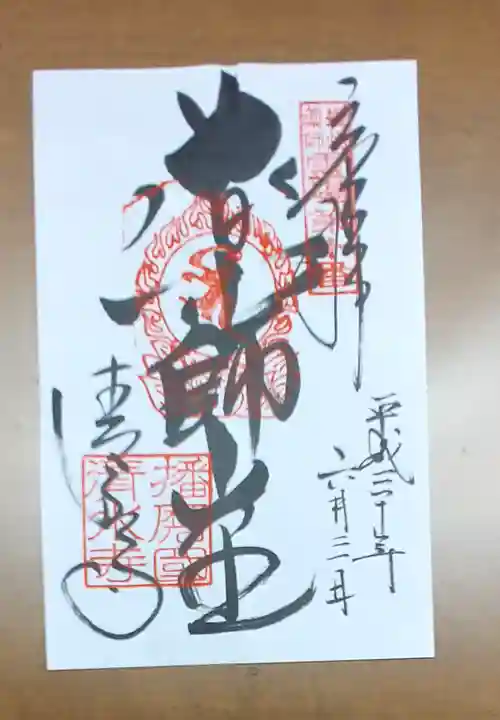 奉拝
平成三十年
六月三日
薬師堂
清水寺
播磨国
清水寺